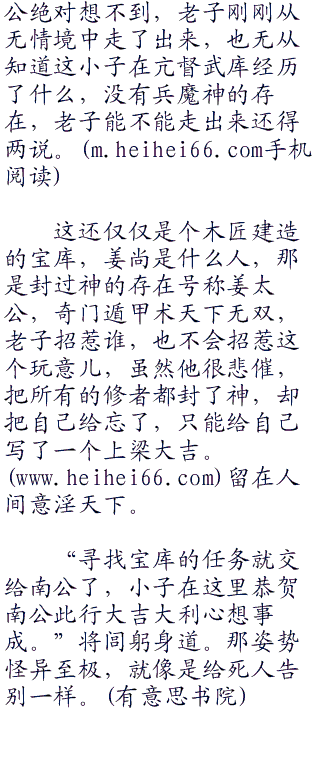 公绝对想不到，老子刚刚从
无情境中走了出来，也无从
知道这小子在亢督武库经历
了什么，没有兵魔神的存
在，老子能不能走出来还得
两说。(m.heihei66.com手机
阅读)
这还仅仅是个木匠建造
的宝库，姜尚是什么人，那
是封过神的存在号称姜太
公，奇门遁甲术天下无双，
老子招惹谁，也不会招惹这
个玩意儿，虽然他很悲催，
把所有的修者都封了神，却
把自己给忘了，只能给自己
写了一个上梁大吉。
(www.heihei66.com)留在人
间意淫天下。
“寻找宝库的任务就交
给南公了，小子在这里恭贺
南公此行大吉大利心想事
成。”将闾躬身道。那姿势
怪异至极，就像是给死人告
别一样。(有意思书院)